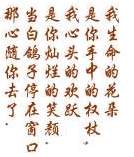 我生命的花朵
是你手中的权杖。
我心头的欢跃
是你灿烂的笑颜。
当白鸽子停在窗口
那心随你去了。